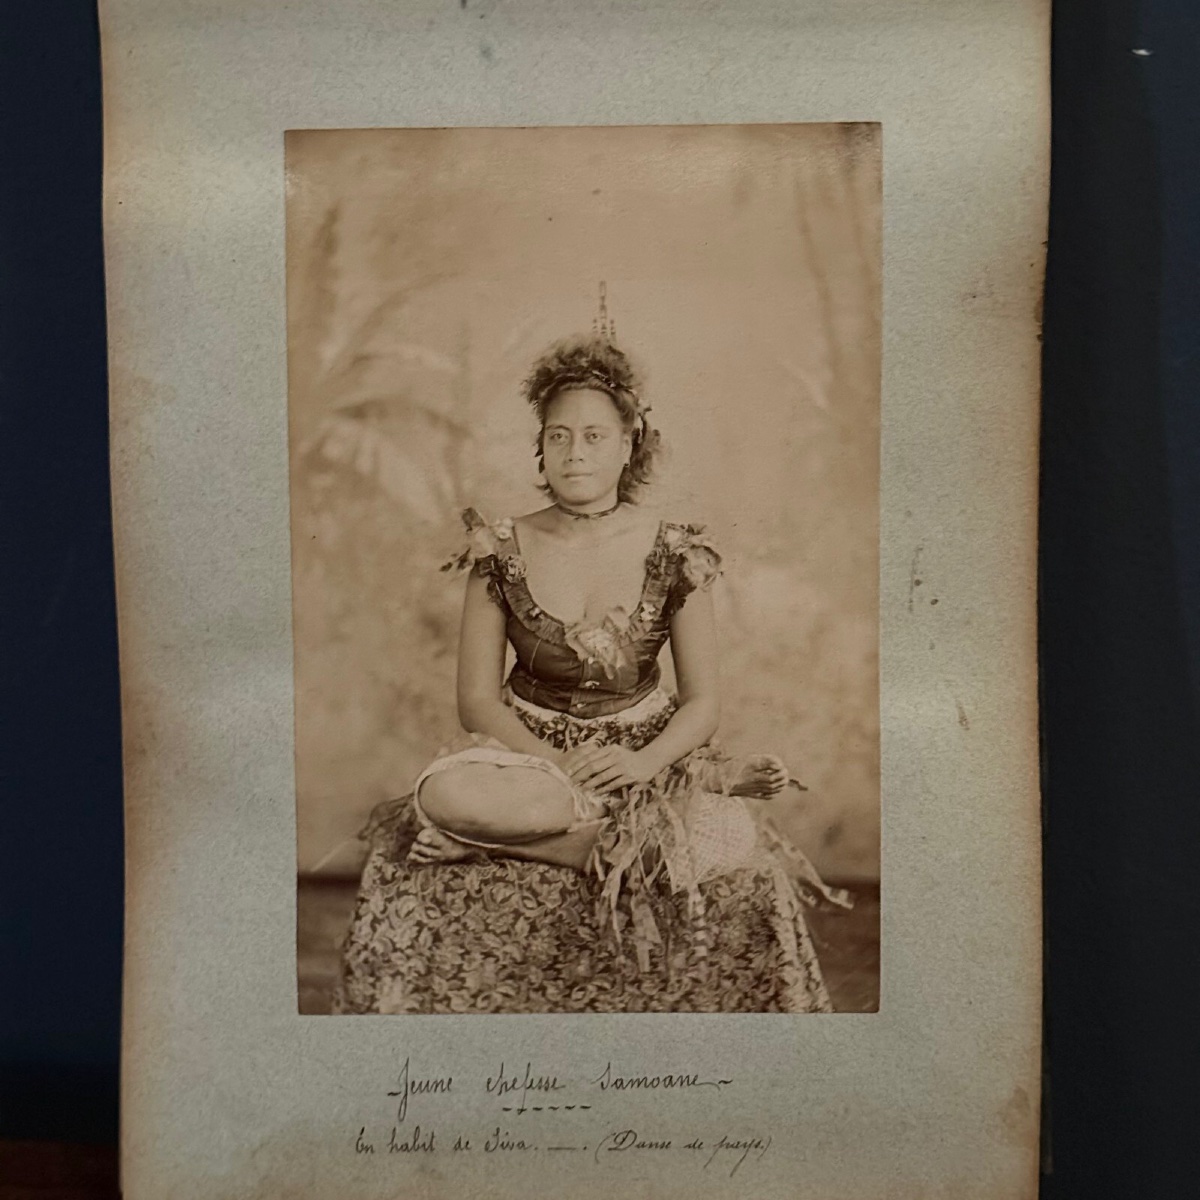 Jeune chefesse Samoane
En habit de Siva. — . (Danse de pays.)